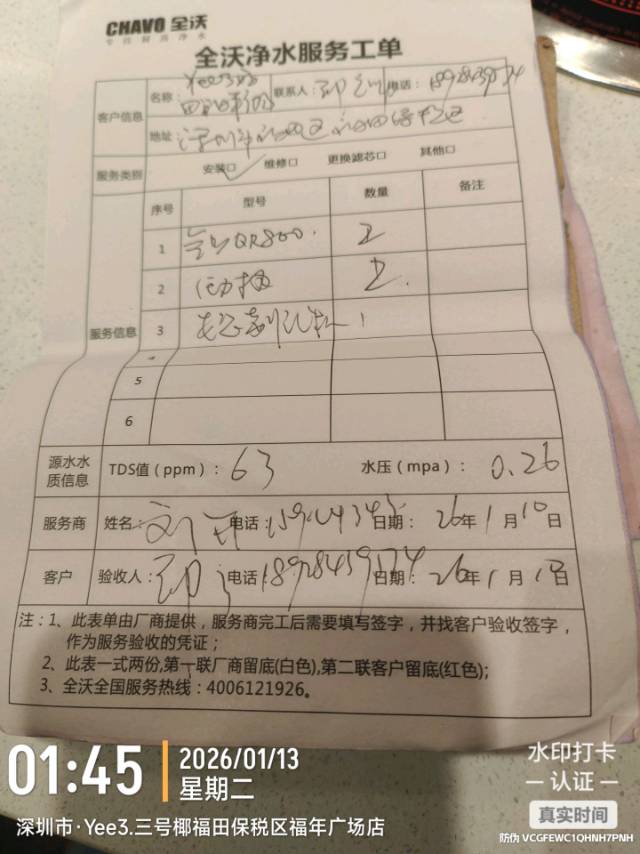 CHAVO 全沃
专注厨房净水
全沃净水服务工单
客户信息 名称: 联系人: 电话:
地址: 深圳市福田区福田保税区
服务类别 安装□ ✓ 维修□ 更换滤芯□ 其他□
服务信息 序号 型号 数量 备注
1 全沃QR800 2
2 2
3 1
5
6
源水水质信息 TDS值(ppm): 63 水压(mpa): 0.26
服务商 姓名: 刘 电话: 日期: 26年1月10日
客户 验收人: 邓 电话: 日期: 26年1月10日
注:1、此表单由厂商提供,服务商完工后需要填写签字,并找客户验收签字,
作为服务验收的凭证;
2、此表一式两份,第一联厂商留底(白色),第二联客户留底(红色);
3、全沃全国服务热线:4006121926。
01:45 2026/01/13
星期二
深圳市·Yee3.三号椰福田保税区福年广场店
水印打卡
认证
真实时间
防伪 VCGFEWC1QHNH7PNH